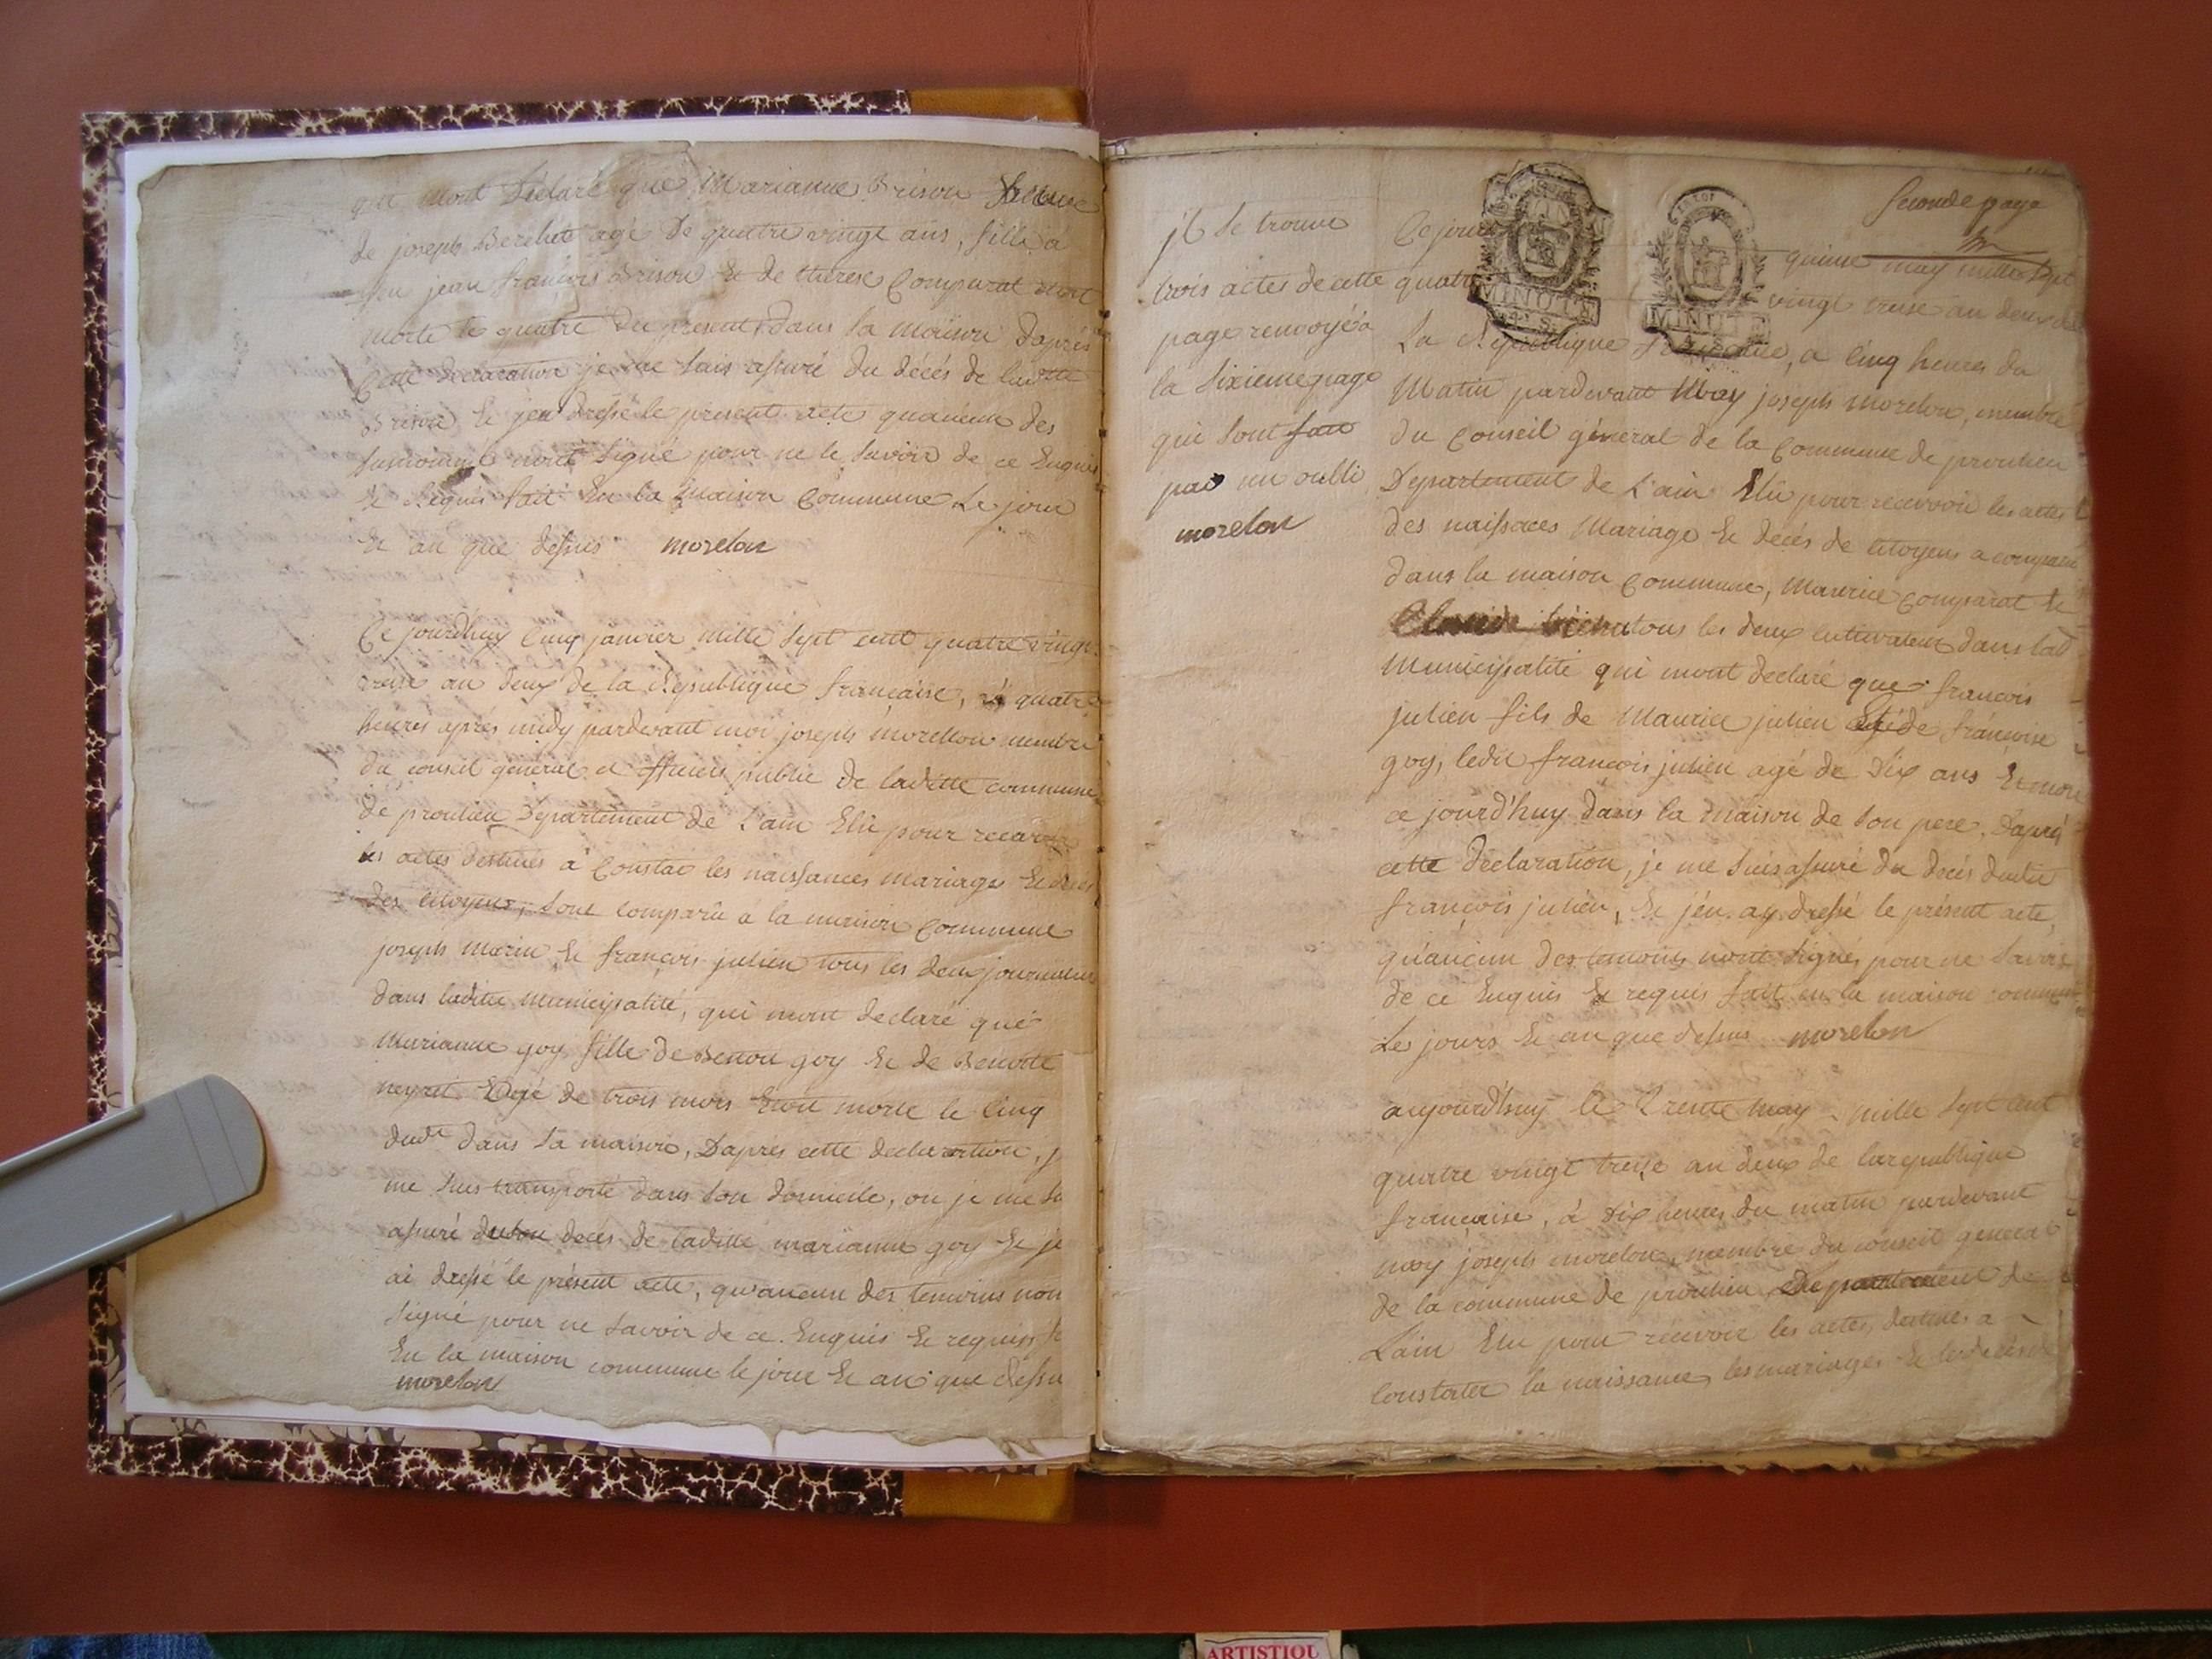 qui mont Déclaré que Marianne Brison femme
de joseph Berchet agé de quatre vingt ans, fille à
feu jean françois Brison & de therese Comparat
morte le quatre du present, dans sa maison d'aprés
Cette declaration je me suis assuré du décés de laditte
Brison & jeu dressé le present acte qu'aucun des
susnommé nont signé pour ne le savoir de ce Enquis
& Requis fait En la maison Commune Le jour
& an que dessus morelon
Ce jourd'huy Cinq janvier mille sept cent quatre vingt
treize an deux de la Republique française, à quatre
heures aprés midy pardevant moi joseph morellon membre
du conseil general et officier public de laditte commune
de proulieu Département de L'ain Elû pour recevoir
les actes destinés à Constat les naissances mariages & décés
des citoyens, sont comparû à la maison Commune
joseph marin & françois julien tous les deux journaliers
dans laditte municipalité, qui mont declaré qué
Marianne goy fille de Benoit goy & de Benoite
neyret Agé de trois mois Etoit morte le Cinq
dudt dans sa maison, Daprès cette declaration, j
me suis transporté dans son domicile, ou je me su
assuré du décés de laditte marianne goy & je
ai dressé le présent acte, qu'aucun des temoins non
signé pour ne savoir de ce Enquis & requis f
En la maison commune le jour & an que dessu
morelon
Seconde page
jl se trouve
trois actes de cette
page renvoyé a
la sixieme page
qui sont fait
par un oubli
morelon
Ce jour quinze may mille sept
quatre vingt treise an deux de
La Republique française, a Cinq heures du
Matin pardevant Moy joseph morelon, membre
du Conseil géneral de la Commune de proulieu
Departement de L'ain Elû pour recevoir les actes
des naissaces Mariage & decés de Citoyens a comparu
dans la maison Commune, Maurice Comparat &
tous les deux cultivateur dans lad
Municipalité qui mont declaré que françois
julien fils de Maurice julien & de françoise
goy, ledit françois julien agé de Dix ans Et mort
ce jourd'huy dans la maison de son pere, D'aprés
cette Declaration, je me suis assuré du decés dudit
françois julien, & j'en ay dressé le présent acte
qu'aucun des temoins nont signés pour ne savoir
de ce Enquis & requis fait en la maison commune
Les jours & an que dessus morelon
aujourd'huy le Trente may mille sept cent
quatre vingt treize an deux de larepublique
française, à Dix heures du matin pardevant
moy joseph morelon, membre du conseil general
de la commune de proulieu Departement de
L'ain Elu pour recevoir les actes, destinés a
Constater la naissances les mariages & les décés de